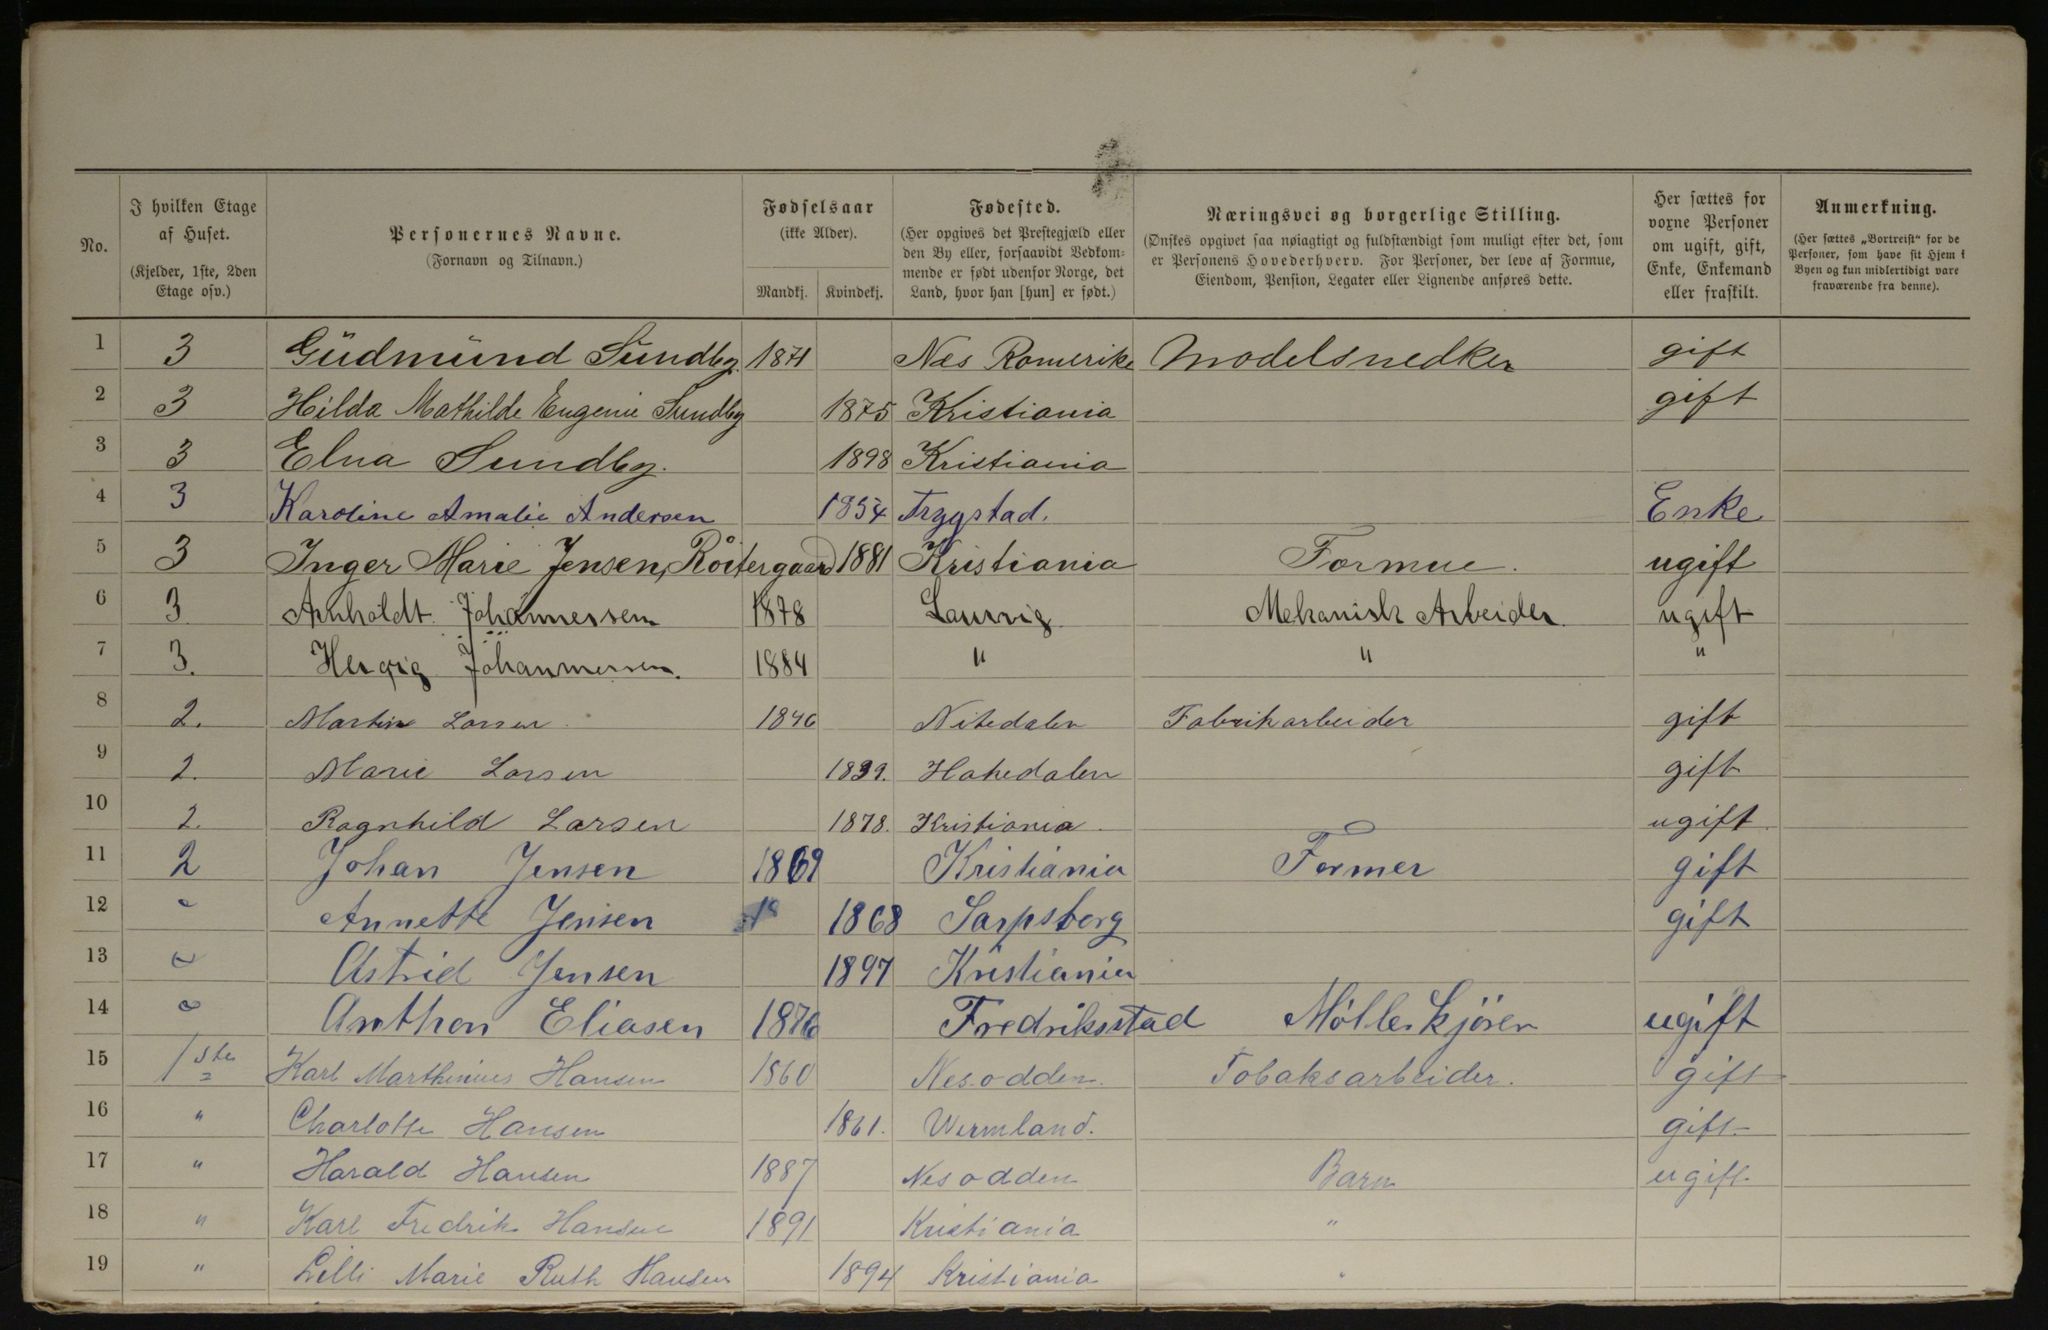 No.
I hvilken Etage af Huset.
(Kjelder, 1ste, 2den Etage osv.)
Personernes Navne.
(Fornavn og Tilnavn.)
Fødselsaar
(ikke Alder).
Mandkj.
Kvindekj.
Fødested.
(Her opgives det Prestegjæld eller den By eller, forsaavidt Vedkommende er født udenfor Norge, det Land, hvor han [hun] er født.)
Næringsvei og borgerlige Stilling.
(Ønskes opgivet saa nøiagtigt og fuldstændigt som muligt efter det, som er Personens Hovederhverv. For Personer, der leve af Formue, Eiendom, Pension, Legater eller Lignende anføres dette.
Her sættes for voxne Personer om ugift, gift, Enke, Enkemand eller fraskilt.
Anmerkning.
(Her sættes „Bortreist“ for de Personer, som have sit Hjem i Byen og kun midlertidigt vare fraværende fra denne).
1 3 Gudmund Sundby. 1871 Nes Romerike Modelsnedker gift
2 3 Hilda Mathilde Eugenie Sundby 1875 Kristiania gift
3 3 Elna Sundby. 1898 Kristiania
4 3 Karoline Amalie Andersen 1854 Trygstad. Enke
5 3 Inger Marie Jensen, 1881 Kristiania Formue. ugift
6 3. Arnholdt Johannessen 1878 Laurvig. Mekanisk Arbeider. ugift
7 3. Johannessen. 1884 " " "
8 2. Martin Larsen. 1846 Nitedalen Fabrikarbeider gift
9 2. Marie Larsen 1839. Hakedalen gift
10 2. Ragnhild Larsen 1878. Kristiania. ugift.
11 2 Johan Jensen 1869 Kristiania Former gift
12 " Annette Jensen 1868 Sarpsborg gift
13 " Astrid Jensen 1897 Kristiania
14 " Anthon Eliasen 1876 Fredriksstad Møllerkjörer ugift
15 1ste Karl Marthinius Hansen 1860 Nesodden. Tobaksarbeider. gift
16 " Charlotte Hansen 1861. Wermland. gift
17 " Harald Hansen 1887 Nesodden Barn ugift
18 " Karl Fredrik Hansen 1891 Kristiania "
19 " Lilli Marie Ruth Hansen 1894 Kristiania "